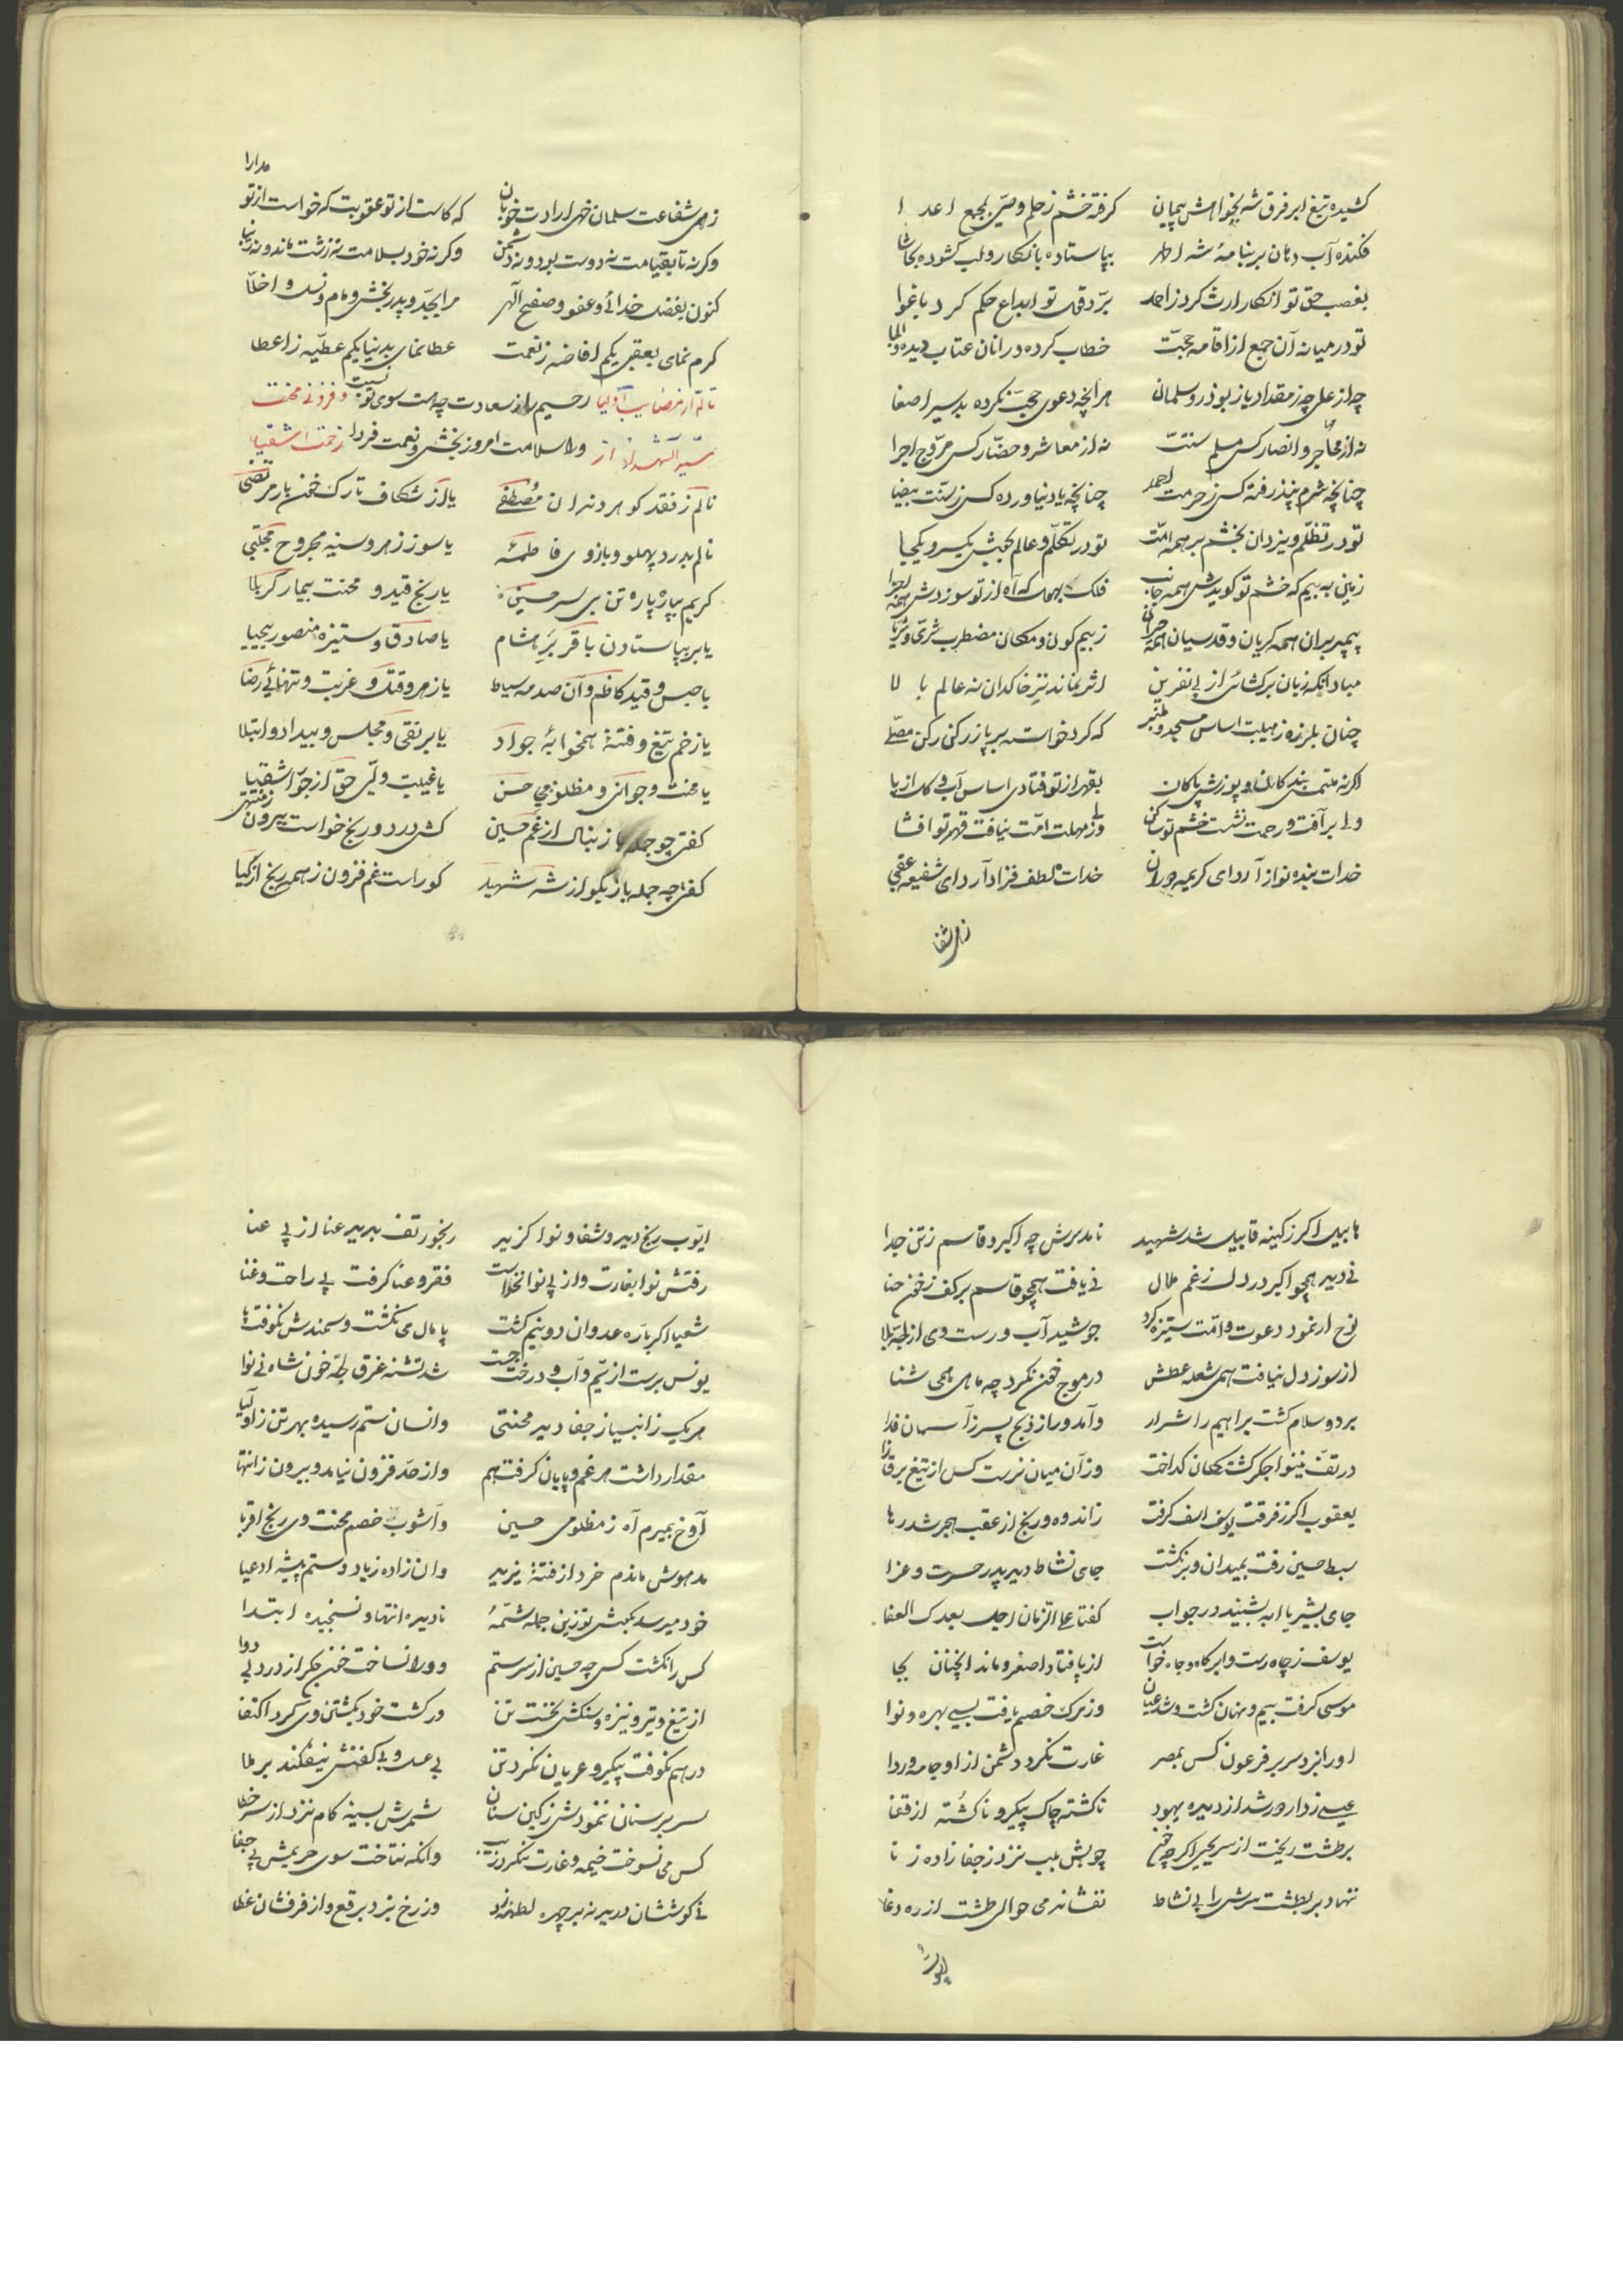 کشیده تیغ ابر فرق شه بخواهش پیمان گرفته خشم ز حلم وصی بمجمع اعدا
فکنده آب دهان بر بنامهٔ شه اطهر بپا ستاده بانکار و لب کشوده بحاشا
بغصب حق تو انکار ارث کرد ز احمد برد قول تو ابداع حکم کرد باغوا
تو در میانه آن جمع از اقامه حجت خطاب کرده در آنان عتاب دیده و ایما
چه از علی چه ز مقداد یا ز بوذر و سلمان هر آنچه دعوی حجت نکرده بد سیر اصغا
نه از مهاجر و انصار کس مسلم سنت نه از معاشر و حضار کس مروج اجرا
چنانچه شرم نپذرفته کس ز حرمت احمد چنانچه یاد نیاورده کس ز سنت بیضا
تو در تظلم و یزدان بخشم بر همه امت تو در تکلم و عالم بجنبش یکسر و یکجا
زمین به بیم که خشم تو کوبدش همه جانب فلک که آه از تو سوزدش همه اجزا
پیمبران همه گریان و قدسیان همه حیران ز بیم کون و مکان مضطرب ثری و ثریا
مباد آنکه زبان برکشائی از پی نفرین اثر نماند نیز خاکدان نه عالم بالا
چنان بلرزه ز هیبت اساس مسجد و منبر که گرد خواست به بر پا ز رکنی رکن مصلی
اگر نه ملتمس بندگان و پوزش پاکان بقهر از تو فتادی اساس آب و گل از پا
ولی بر آفت و رحمت نشست خشم تو ساکن وز مهلت امت نیافت قهر تو افشا
خدات بنده نواز آرد ای کریمه دوران خدات لطف فزاد آرد ای شفیعه عقبی
زهی شفا
مدارا
زهی شفاعت سلمان خهی ارادت خوبان که کاست از تو عقوبت که خواست از تو
وگرنه تا بقیامت نه دوست بود و نه دشمن وگرنه خود بسلامت نه زشت ماند و نه زیبا
کنون بفضل خدائی و عفو و صفح الهی مرا بجد و پدر بخش و مام و نسل و اخلا
کرم نمای بعقبی یکم افاضه ز نعمت عطا نمای بدنیا یکم عطیه ز اعطا
تألم از مصایب اولیا رحیم را ز سعادت چه هست سوی تو نسبت و فزونی محنت
سید الشهدا از ولا سلامت امروز بخش و نعمت فردا زحمت اشقیا
نالم ز فقد گوهر دندان مصطفی یا از شکاف تارک خون بار مرتضی
نالم بدرد پهلو و بازوی فاطمه یا سوز زهر و سینه مجروح مجتبی
گریم بپاره پاره تن بی سر حسین یا رنج قید و محنت بیمار کربلا
یا بر بپا ستادن باقر بر هشام یا صادق و ستیزه منصور بیحیا
یا حبس و قید کاظم و آن صدمه سیاط یا زهر و قتل و غربت و تنهائی رضا
یا زخم تیغ و فتنهٔ همخوابهٔ جواد یا بر نقی و مجلس و بیداد و ابتلا
یا محنت و جوانی و مظلومی حسن یا غیبت ولی حق از جور اشقیا
گفتی چو جمله باز بنال از غم حسین کش درد و رنج خواست بیرون ز منتهی
گفتی چه جمله باز بگو از شه شهید کو راست غم فزون ز همه رنج از کیا
هابیل اگر ز کینه قابیل شد شهید نامد برش چه اکبر و قاسم ز تن جدا
نی دید همچو اکبر در دل ز غم ملال نی یافت همچو قاسم بر کف ز خون حنا
نوح ار نمود دعوت و امت ستیزه کرد جوشید آب و رست وی از لجه بلا
از سوز دل نیافت همی شعله عطش در موج خون نکرد چه ماهی همی شنا
برد و سلام گشت براهیم را شرار وآمد ورا ز ذبح پسر ز آسمان فدا
در تف نینوا جگر گشتگان گداخت وز آن میان نرست کس از تیغ بر قفا
یعقوب اگر ز فرقت یوسف اسف گرفت ز اندوه و رنج از عقب هجر شد رها
سبط حسین رفت بمیدان و برنگشت جای نشاط دید پدر حسرت و عزا
جای بشیر یا ابه بشنید در جواب گفتا علی الزمان اجل بعدک العفا
یوسف ز چاه رست و ابر گاه و جاه خواست از پا فتاد اصغر و ماند آنچنان بجا
موسی گرفت بیم و نهان گشت و شد عیان وز مرگ خصم یافت بسی بهره و نوا
او را نزد سر بر فرعون کس بمصر غارت نکرد دشمن از او جامه و ردا
عیسی ز دار ور شد از دیده یهود نا گشته چاک پیکر و نا کشته از قفا
بر طشت ریخت از سر یحیی اگر چه خون چوبش بلب نزد ز جفا زاده زنا
ننهاد بر بطشت سرش را پی نشاط نفشاند می حوالی طشت از ره دغا
ایوب
ایوب رنج دید و شفا و نوا گزید رنجور تف بدید عنا از پی عنا
رفتش نوا بغارت و از پی نوا نخاست فقر و عنا گرفت پی راحت و غنا
شعیا اگر باره عدوان دو نیم گشت پا مال می نگشت و سمندش نکوفت پا
یونس برست از یم و آب و درخت جست شد تشنه غرق لجه خون شاه نینوا
هر یک ز انبیا ز جفا دید محنتی وانسان ستم رسیده بهر تن ز اولیا
مقدار داشت هر غم و پایان گرفت هم وز حد فزون نیامد و بیرون ز انتها
آوخ بمیرم آه ز مظلومی حسین وآشوب خصم محنت وی رنج اقربا
مدهوش ماندم خرد از فتنهٔ یزید وان زاده زیاد و ستم پیشه ادعیا
خود میرسد بکنش تو زین جمله شمهٔ نادیده انتها و نسنجیده ابتدا
کس را نکشت کس چه حسین از سر ستم وورا نساخت خون جگر از درد بی دوا
از تیغ و تیر و نیزه و سنگش نخست تن ور کشت خود بکشتن وی کرد اکتفا
در هم نکوفت پیکر و عریان نکرد تن بی غسل و بی کفنش نیفکند بر ملا
سر بر سنان ننمودش ز کین سنان شمرش بسینه گام نزد از سر خطا
کس می نسوخت خیمه و غارت نکرد رخت وانگه نتاخت سوی حریمش پی جفا
نی گوششان درید نه بر چهره لطمه زد وز رخ نبرد برقع و از فرقشان غطا